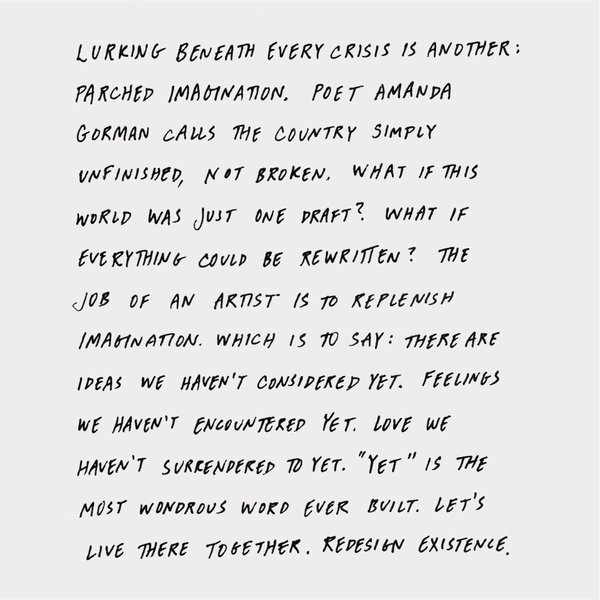 LURKING BENEATH EVERY CRISIS IS ANOTHER:
PARCHED IMAGINATION. POET AMANDA
GORMAN CALLS THE COUNTRY SIMPLY
UNFINISHED, NOT BROKEN. WHAT IF THIS
WORLD WAS JUST ONE DRAFT? WHAT IF
EVERYTHING COULD BE REWRITTEN? THE
JOB OF AN ARTIST IS TO REPLENISH
IMAGINATION. WHICH IS TO SAY: THERE ARE
IDEAS WE HAVEN'T CONSIDERED YET. FEELINGS
WE HAVEN'T ENCOUNTERED YET. LOVE WE
HAVEN'T SURRENDERED TO YET. "YET" IS THE
MOST WONDROUS WORD EVER BUILT. LET'S
LIVE THERE TOGETHER. REDESIGN EXISTENCE.